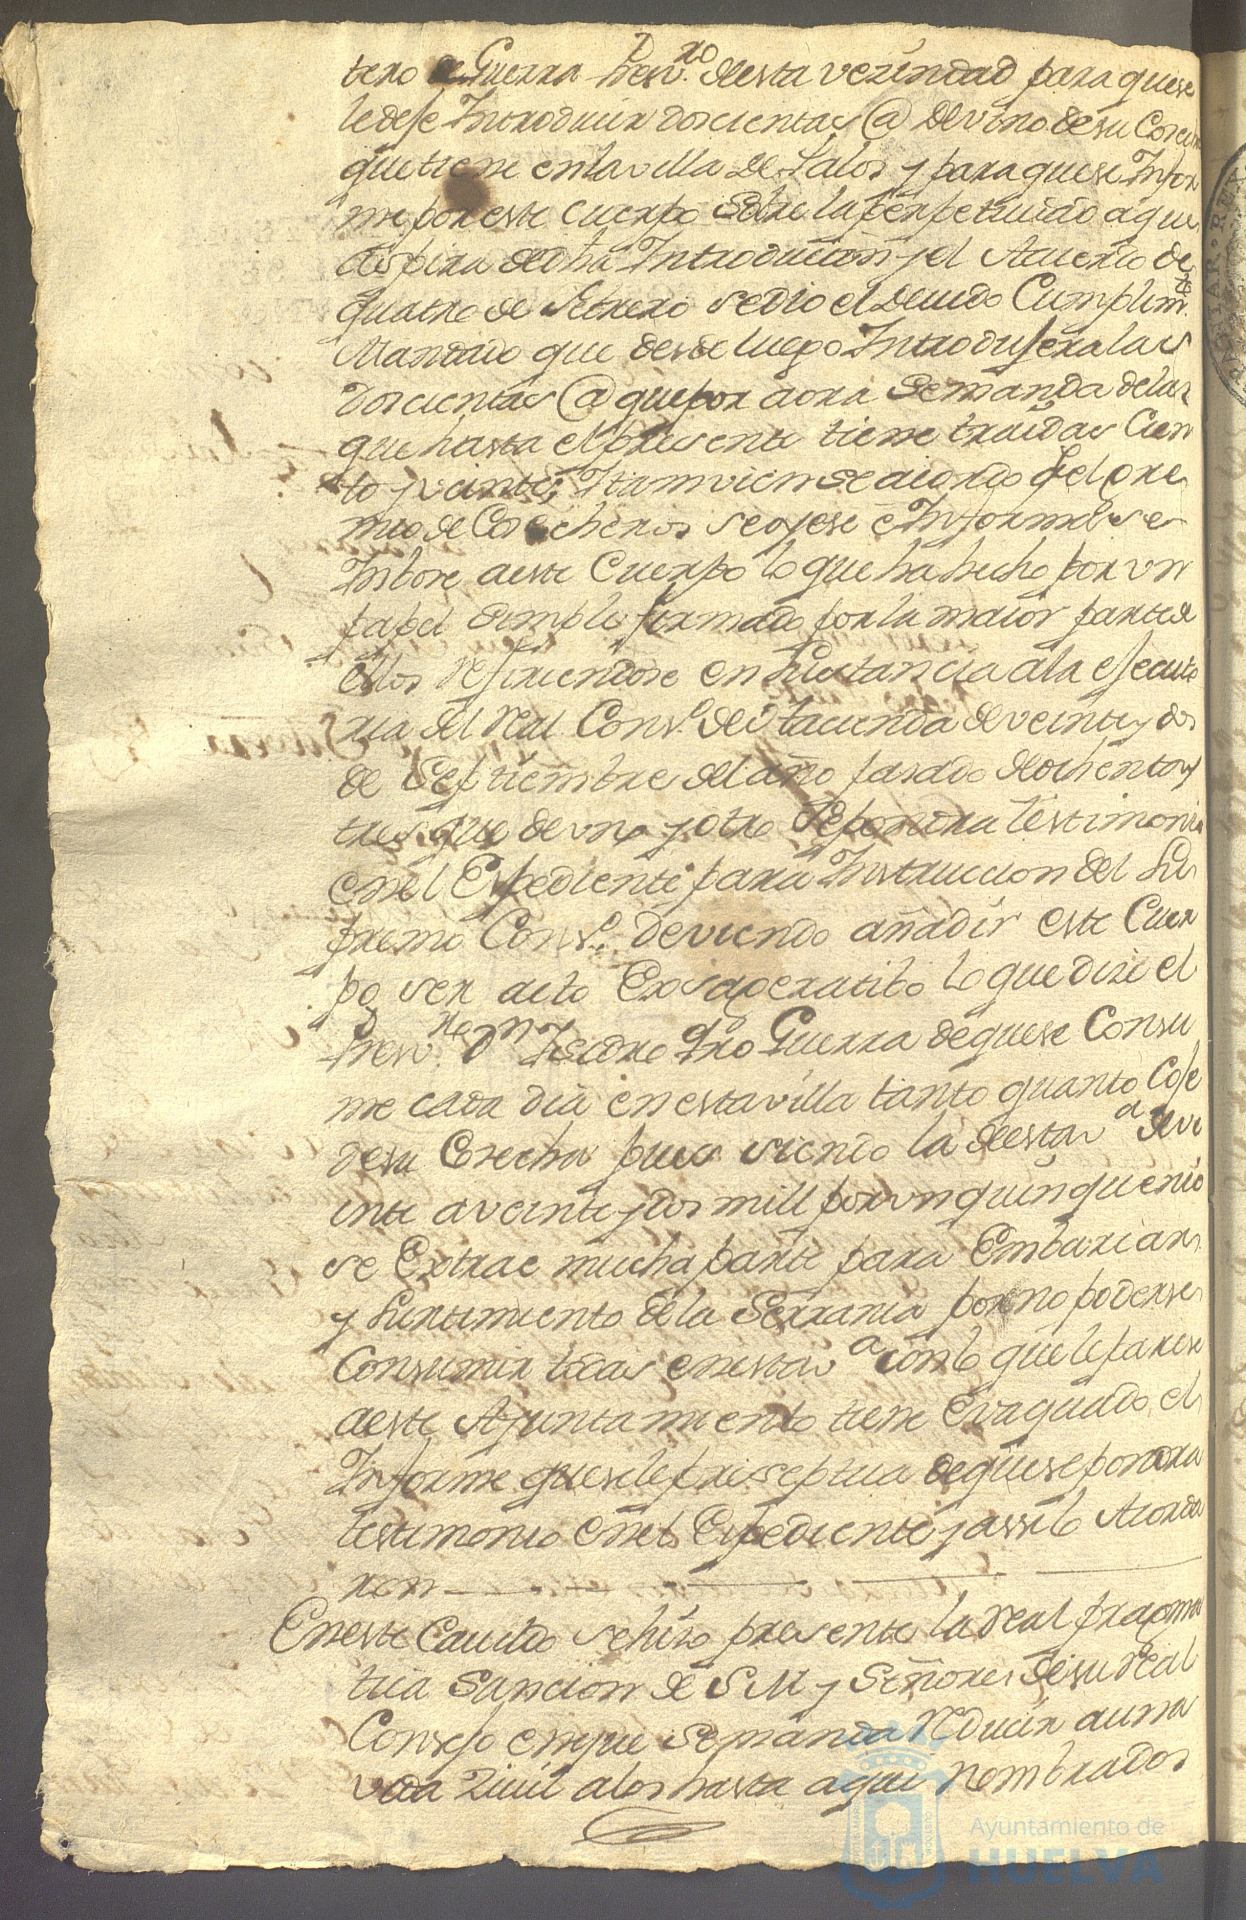 tero de Guerra Presv.ro deesta vezindad para quese
ledese Introducir doscientas @ de vino de su Cosecha
que tiene enla villa de Palos y para quese Infor
me por este cuerpo sobre la perpetuidad aque
aspira de dha Introducion y el Acuerdo de
quatro de Febrero se dio el devido Cumplim.to
Mandado que desde luego Introdusera las
doscientas @ que por aora se manda delas
que hasta el presente tiene traidas Cien
to y veinte; Itamvien se acordo q.e el Gre
mio de Cosecheros se oyese e Informese
Inbore aeste Cuerpo lo que ha hecho por un
papel simple firmado por la maior parte de
ellos refiriendose en sustancia ala esecuto
ria del real Cons.o de Hacienda de veinte y dos
de Septiembre del año pasado de ochenta y
tres que de uno y otro se pondra testimonio
enel Expediente para Instruccion del Su
premo Cons.o deviendo añadir este Cuer
po ser acto Exsageratibo lo que dise el
Presv.ro Dn Isidro Qro Guerra de quese Consu
me cada dia en esta villa tanto quanto Cose
desu Cosecha pues siendo la deesta v.a de ve
inte a veinte y dos mill por un quinquenio
se Extrae mucha parte para Embarcar
y Surtimiento dela Serrania por no poderse
Consumir todas enesta v.a con lo que le parese
aeste Ajuntamiento tiene Evaquado el
Informe quesele preseptua de quese pondra
testimonio enel Expediente y assi lo Acorda
ron
Eneste Cavildo sehizo presente la real pragma
tica Sancion de S M y Señores desu real
Consejo enque se manda reducir auna
vida zivil alos hasta aqui nombrados
Ayuntamiento de
HUELVA